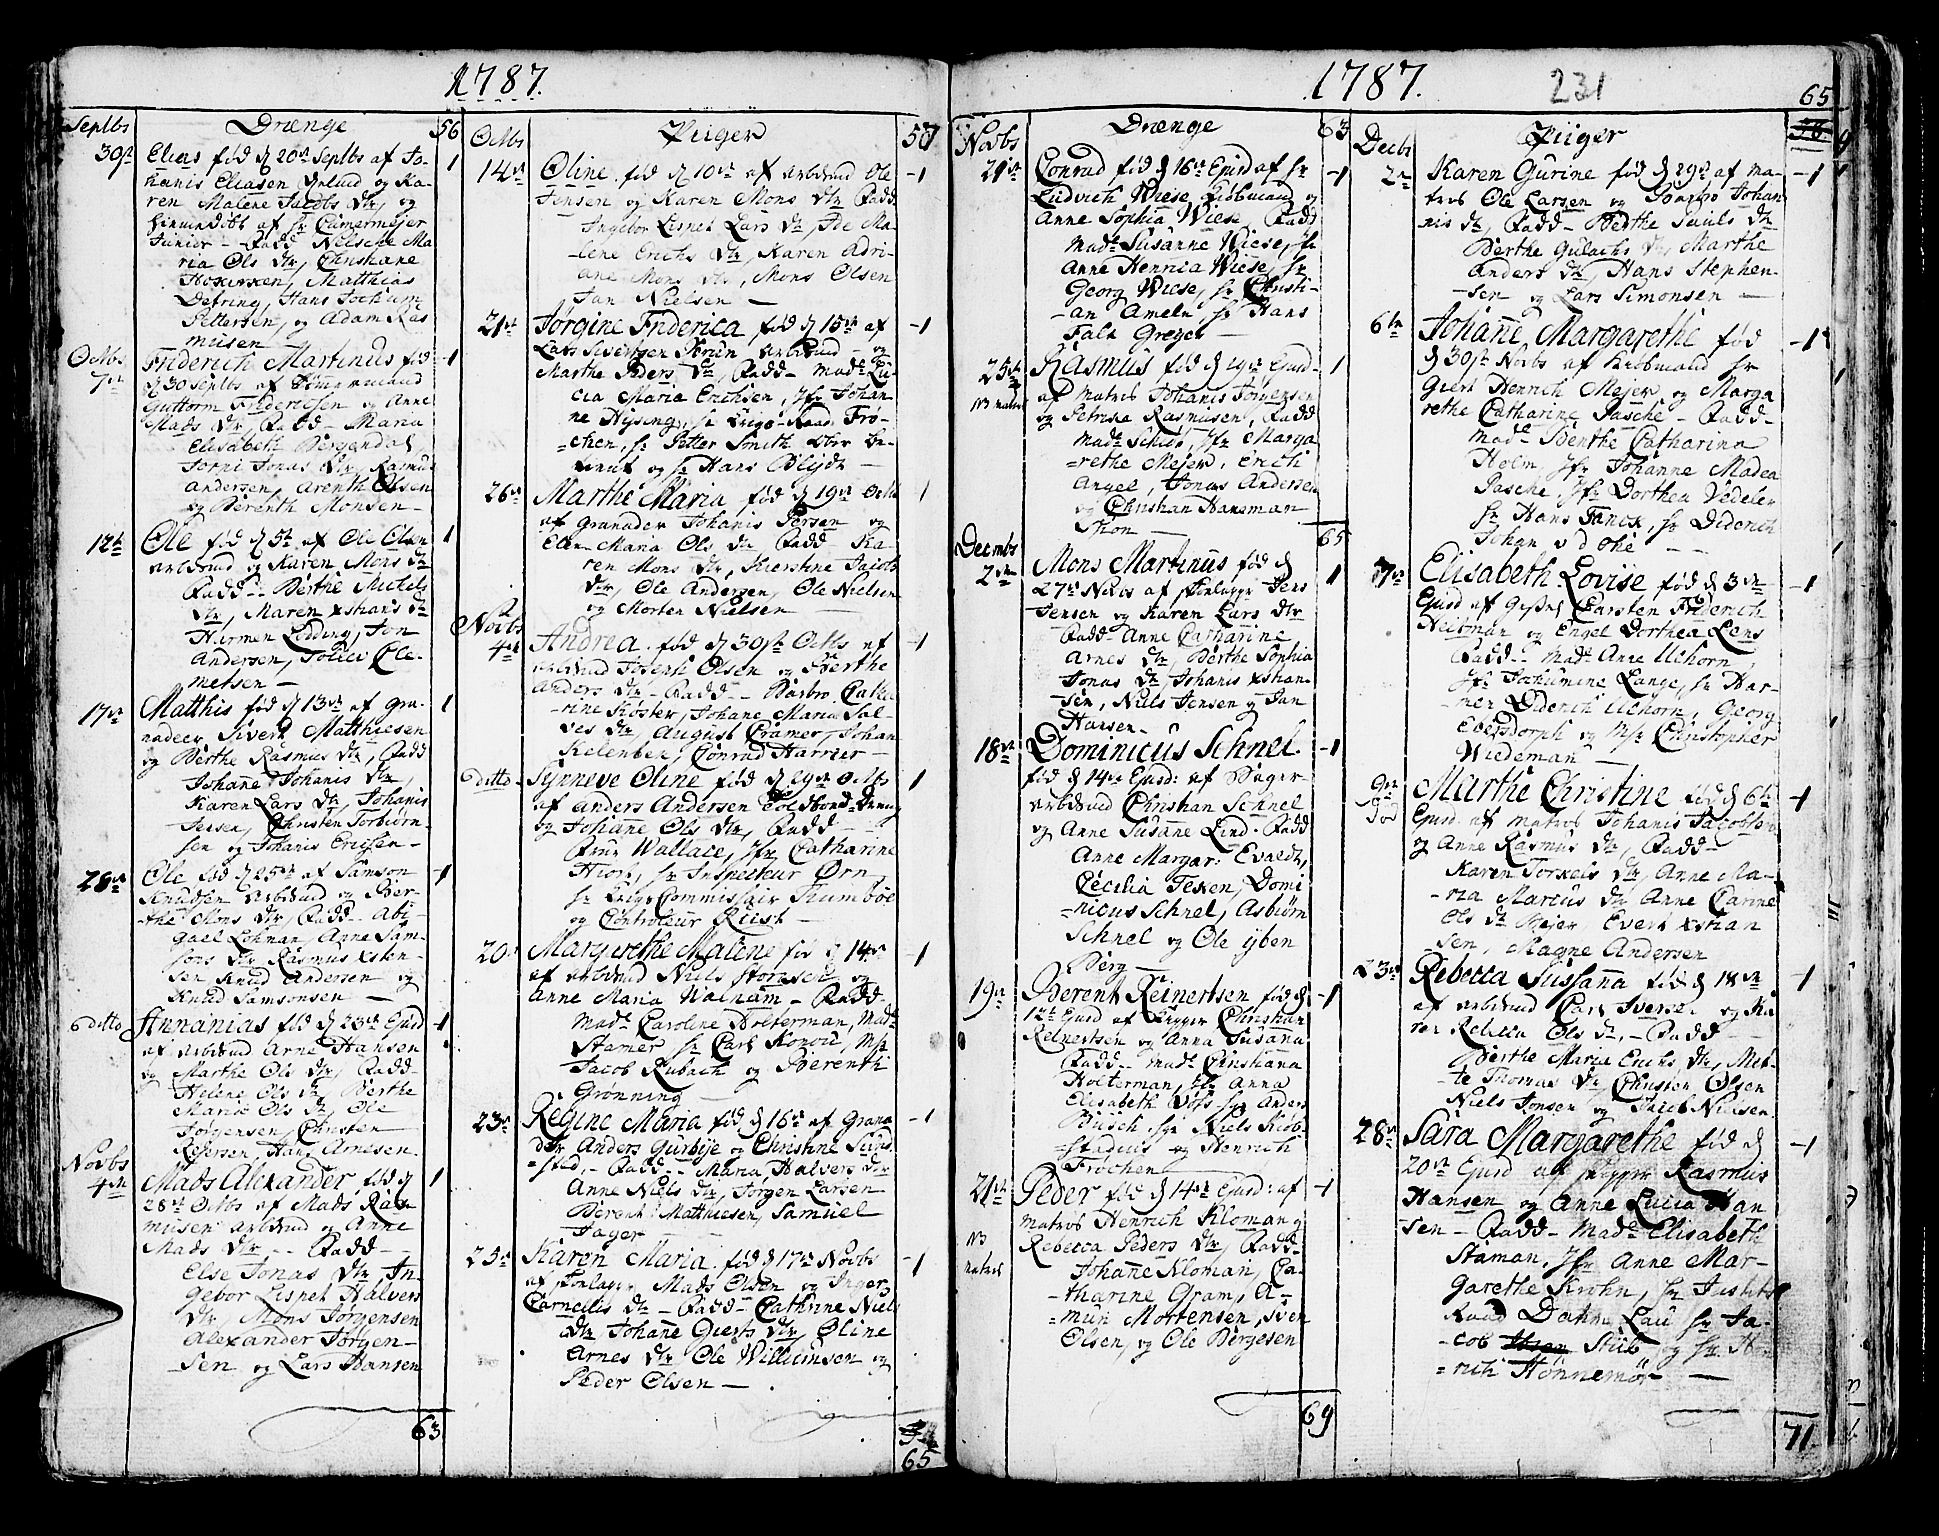 1787.
Septbs
Drænge
56
30st
Elias fød d 20de Septbs af Jo-
1
hanis Eliasen og Ka-
ren Malene Jacobs dtr, og
af hr Camermejer
Junior - Fadd Nilsche Ma
ria Ols dtr, Christiane
Matthias
Detring, Hans Jochum
Pettersen, og Adam Ras
musen -
Octbs
7de
Friderich Martinus fød
1
d 30 Septbs af
Guttorm Fridericsen og Anne
Mads dtr, Fadd - Maria
Elisabeth Bergendal,
Jorni Jonas dtr, Rasmus
Andersen, Arenth Olsen
og Berenth Monsen -
12te
Ole fød d 5te af Ole Olsen
1
arbdsud og Karen Mons dtr
Fadd - Berthe Michels
dtr, Maren xstians dtr
Harmen Lidding, Jon
Andersen, Tollev Cle-
metsen -
17de
Matthis fød d 13de af gra-
1
nadeer Sivert Matthiesen
og Berthe Rasmus dtr, Fadd
Johanne Johanis dtr,
Karen Lars dtr, Johanis
Jensen, Christen Torbiørn-
sen og Johanis Ericsen -
28de
Ole fød d 25de af Samson
1
Knudsen arbdsud og Ber-
the Mons dtr, Fadd - Abi-
gael Lohman, Anne Sam-
sons dtr, Rasmus xsten-
sen Knud Andersen og
Knud Samsonsen -
ditto
Annanias fød d 23de Ejusd
1
af arbdsud Arne Hansen
og Marthe Ols dtr, Fadd -
Helene Ols dtr, Berthe
Marie Ols dtr, Ole
Jørgensen, Christen
Pedersen, Hans Arnesen
Novbs
4de
Mads Alexander, fød d
1
28de Octbs af Mads Ras-
musen arbdsud og Anne
Mads dtr - Fadd -
Else Jonas dtr, In-
gebor Lispet Halvers
dtr, Mons Jørgensen
Alexander Jørgen-
sen og Lars Hansen
63
Octbs
Piiger
57
14de
Oline fød d 10de af arbdsud Ole
1
Jensen og Karen Mons dtr Fadd
Ingebor Lispet Lars dtr, Ide Ma-
lene Erichs dtr, Karen Adri-
ane Mons dtr, Mons Olsen
Jan Nielsen -
21de
Jørgine Friderica fød d 15de af
1
Lars Sivertsen arbdsud - og
Marthe Peders dtr, Fadd - Made Lu-
cia Maria Erichsen, Jfr Johan-
ne Hysing, hr Krigs-Raad Frø-
chen, hr Petter Smith
og hr Hans Blÿdt -
26de
Marthe Maria fød d 19de Octbs
1
af Granader Johanis Persen og
Elen Maria Ols dtr Fadd - Ka-
ren Mons dtr, Kierstine Jacobs
dtr, Ole Andersen, Ole Nielsen
og Morten Nielsen -
Novbs
4de
Andrea fød d 30st Octbs af
1
arbdsud Joseph Olsen og Berthe
Anders dtr - Fadd - Barbro Catha
rine Køster, Johane Maria Sal-
ves dtr, August Cramer, Johan
Kelenben, Conrad Harrier -
ditto
Synneve Oline fød d 29de Octbs
1
af Anders Andersen
og Johanne Ols dtr, Fadd -
Frue Wallace, Jfr Catharine
Hiort, hr Inspecteur Ørn
hr Krigs Commissair
og Controleur Riist -
20
Margrethe Malene fød d 14de
1
af arbdsud Niels og
Anne Maria - Fadd
Made Caroline Holterman, Made
Stamer hr Carl Konow, Msr
Jacob Rubach og Berenth
Grønning -
23de
Regine Maria fød d 16de af Grana
1
deer Anders Gurbÿe og Christine
Fadd - Maria Halvers dtr
Anne Niels dtr, Jørgen Larsen
Berent Matthiesen, Samuel
Jager -
25de
Karen Maria fød d 17de Novbs
1
af Mads Olsen og Inger
Cornelis dtr - Fadd - Cathrine Niels
dtr Johanne Gierts dtr, Oline
Arnes dtr, Ole Willumsen og
Peder Olsen -
65
1787.
231
65
Novbs
Drænge
63
21de
Conrad fød d 16de Ejusd af hr
1
Ludvich Wiese Kiøbmand og
Anne Sophia Wiese, Fadd
Made Susanne Wiese, Jfr
Anne Henrica Wiese, hr
Georg Wiese, hr Christi-
an Ameln, hr Hans
Falk Greger -
25de
NB matros
Rasmus fød d 19de Ejusd -
1
af matros Johanis Jørgensen
og Petricke Rasmusen, Fadd
Made Jfr Marga
rethe Mejer, Erich
Angel, Jonas Andersen
og Christian Hansman
Thon -
65
Decmbs
2den
Mons Martinus fød d
1
27de Novbs af Jens
Jensen og Karen Lars dtr
Fadd - Anne Catharine
Arnes dtr, Berthe Sophia
Jonas dtr, Johanis xstian-
sen, Niels Jensen og Jan
Hansen -
18de
Dominicus Schnel
1
fød d 14de Ejusd: af Bager-
arbdsud Christian Schnel
og Anne Susane Lind. Fadd
Anne Margar: Evaldt,
Cecilia Texen, Domi
nicus Schnel, Asbiørn
Schnel og Ole ÿben
Berg -
19de
Berent Reinertsen fød d
1
12te Ejusd af Christian
Reinertsen og Anna Susana
Fadd - Made Christiana
Holterman, Jfr Anna
Elisabeth Voss hr Anders
Busch, hr Niels Kiøb-
stadius og Henrich
Frochen
21de
NB
matros
Peder fød d 14de Ejusd: af
1
matros Henrich Kloman og
Rebecca Peders dtr, Fadd -
Johanne Kloman, Ca-
tharine Gram, A-
mun Mortensen, Iven
Olsen, og Ole Børgesen
69
Decbs
Piiger
2den
Karen Gurine fød d 29de af ma-
1
tros Ole Larsen og Barbro Johan
nis dtr, Fadd - Berthe Pauls dtr
Berthe Gulachs dtr, Marthe
Anders dtr, Hans Stephen-
sen og Lars Simonsen -
6te
Johanne Margarethe fød
1
d 30st Novbs af Kiøbmand hr
Giert Henrich Mejer og Marga
rethe Catharine Pasche - Fadd -
Made Berthe Catharina
Holm, Jfr Johanne Madea
Pasche, Jfr Dorthea Vedeler
hr Hans Fanck, hr Diderich
Johan v d Ohe -
7de
Elisabeth Lovise fød d 3de
1
Ejusd af Carsten Friderich
Neibman og Engel Dorthea Lens
Fadd - Made Anne Uchorn,
Jfr Jochumine Lange, hr Har-
men Diderich Uchorn, Georg
Ebersdorph og Msr Christopher
Wiedeman -
9de
død
Marthe Christine fød d 6te
1
Ejusd af matros Johanis Jacobsen
og Anne Rasmus dtr, Fadd -
Karen Torkels dtr, Anne Ma-
ria Marcus dtr, Anne Carine
Ols dtr Mejer, Evert xstian
sen, Magne Andersen
23de
Rebecca Sussana fød d 18de
1
af arbdsud Carl Iverse. og Ka
ren Rebecca Ols dtr - Fadd -
Berthe Marie Erichs dtr, Met-
te Thomas dtr, Christen Olsen
Niels Jonsen og Jacob Nielsen
28de
Sara Margarethe fød d
1
20de Ejusd af Rasmus
Hansen og Anne Lucia Han
sen - Fadd - Made Elisabeth
Staman, Jfr Anne Mar-
garethe Krohn, hr Justits
Raad Dahn, Lau hr Ja-
cob Stub og hr Hen
rich Hønnemør -
71